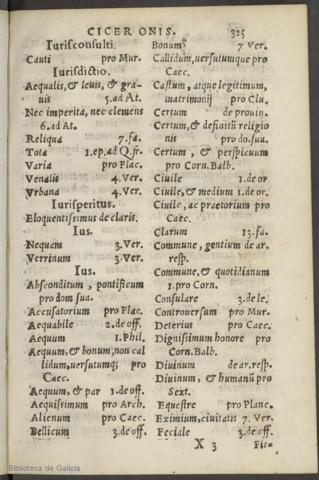 CICERONIS. 325
Iurisconsulti.
Cauti pro Mur.
Iurisdictio.
Aequalis, & leuis, & gra-
uis 5. ad At.
Nec imperita, nec clemens
6. ad At.
Reliqua 7. fa.
Tota 1. ep. ad Q. fr.
Varia pro Flac.
Venalis 4. Ver.
Vrbana 4. Ver.
Iurisperitus.
Eloquentissimus de claris.
Ius.
Nequam 3. Ver.
Verrinum 3. Ver.
Ius.
Absconditum, pontificum
pro dom sua.
Accusatorium pro Flac.
Aequabile 2. de off.
Aequum 1. Phil.
Aequum, & bonum, non cal
lidum, uersutumq; pro
Caec.
Aequum, & par 1. de off.
Aequissimum pro Arch.
Alienum pro Caec.
Bellicum 3. de off.
Bonum 7 Ver.
Callidum, uersutumque pro
Caec.
Castum, atque legitimum,
matrimonij pro Clu.
Certum de prouin.
Certum, & definitū religio
nis pro do. sua.
Certum, & perspicuum
pro Corn. Balb.
Ciuile 1. de or
Ciuile, & medium 1. de or.
Ciuile, ac praetorium pro
Caec.
Clarum 13. fa.
Commune, gentium de ar.
resp.
Commune, & quotidianum
1. pro Corn.
Consulare 3. de le.
Controuersum pro Mur.
Deterius pro Caec.
Dignissimum honore pro
Corn. Balb.
Diuinum de ar. resp.
Diuinum, & humanū pro
Sext.
Equestre pro Planc.
Eximium, ciuitatis 7. Ver.
Feciale 3. de off.
X 3 Fir=
Biblioteca de Galicia